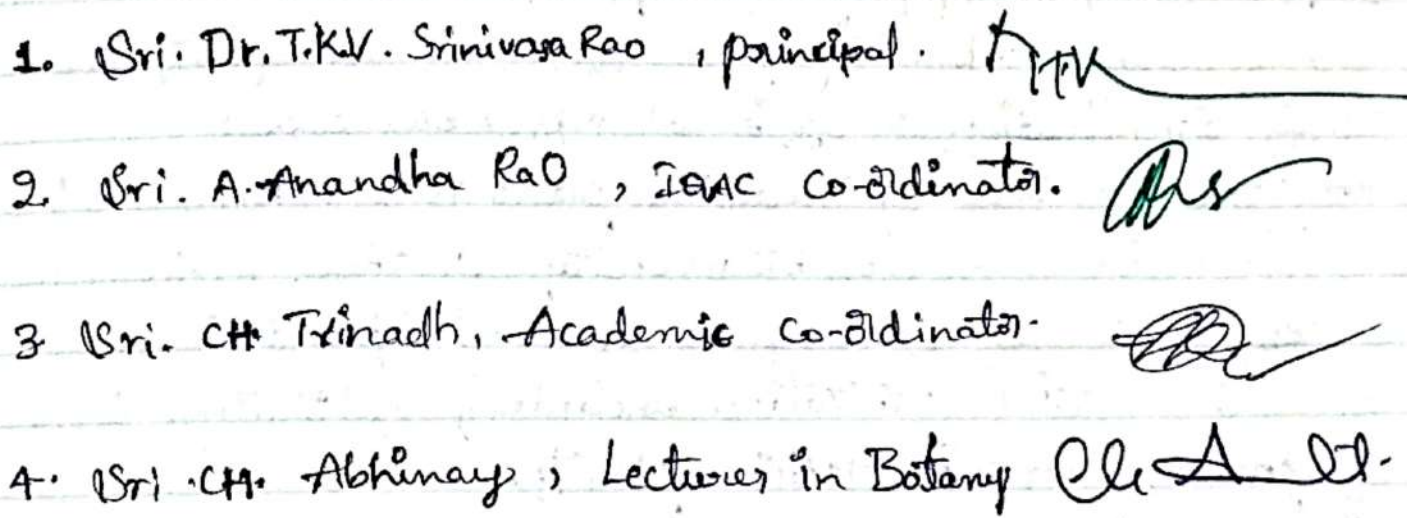 1. Sri. Dr. T.K.V. Srinivasa Rao , principal.
2. Sri. A. Anandha Rao , IQAC Co-ordinator.
3. Sri. CH. Trinadh, Academic Co-ordinator.
4. Sri. CH. Abhinay , Lecturer in Botany